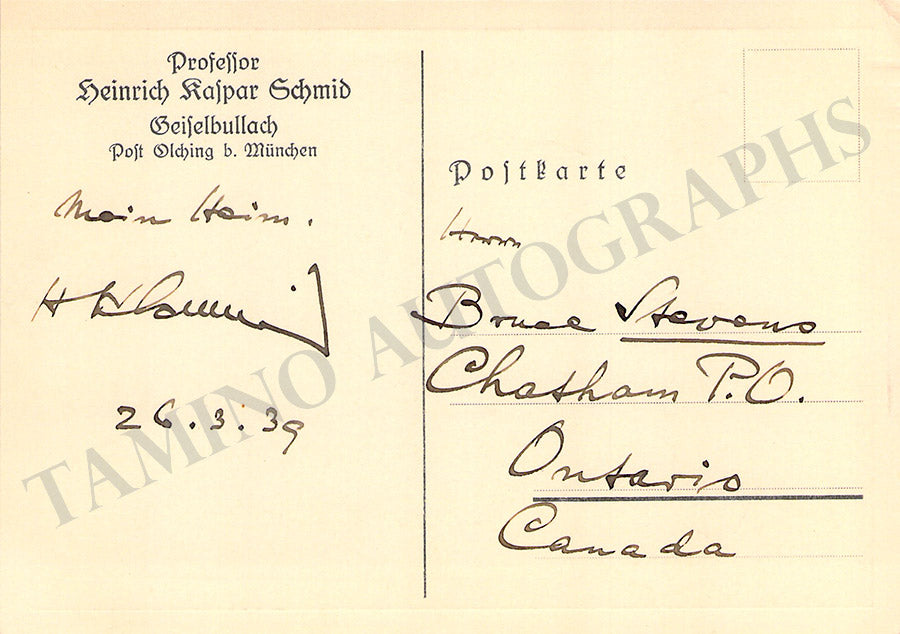 Professor
Heinrich Kaspar Schmid
Geiselbullach
Post Olching b. München
Mein Heim.
HKSchmid
26.3.39
Postkarte
Herrn
Bruce Stevens
Chatham P.O.
Ontario
Canada
TAMINO AUTOGRAPHS